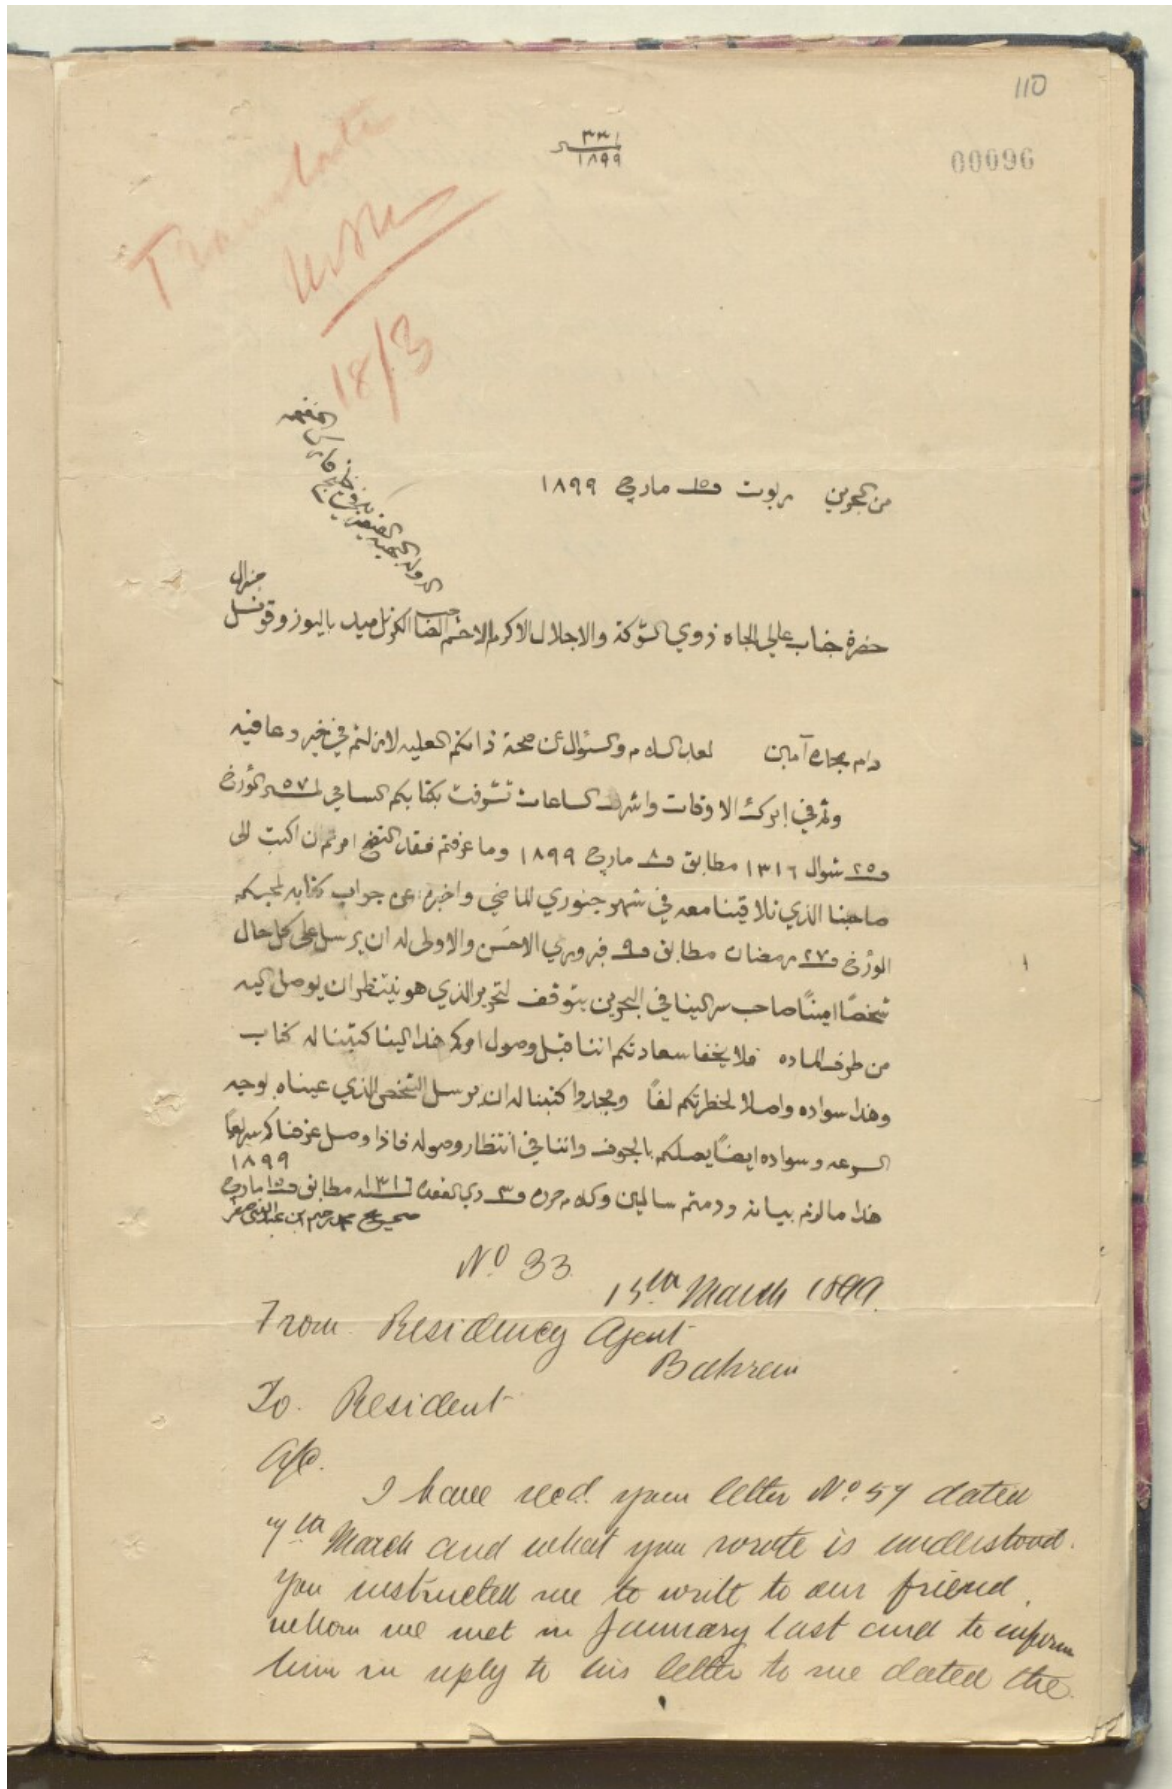 110
٣٣١
١٨٩٩
00096
Translate
18/3
من البحرين بربوت ١٥ مارچ ١٨٩٩
الدولة البهية القيصرية في خليج فارس المفخم
جنرال
حضرة جناب عالي الجاه ذوي الشوكة والاجلال الاكرم الاحشم الكرنل ميد باليوز وقونسل
دام مجده آمين لعد السلام والسئوال عن صحة ذاتكم العليه لازلتم في خير وعافيه
وثم في ابرك الاوقات واشرف الساعات تشرفت بكتابكم السامي ٥٧ المؤرخ
٢٥ شوال ١٣١٦ مطابق ٨ مارچ ١٨٩٩ وما عرفتم فقد اتضح امرتم ان اكتب الى
صاحبنا الذي تلاقينا معه في شهر جنوري الماضي واخبره عن جواب كتابه لمحبكم
المؤرخ ٢٧ رمضان مطابق ٩ فبروري الاحسن والاولى له ان يرسل على كل حال
شخصًا امينًا صاحب سر الينا في البحرين يتوقف لتحرير الذي هو ينتظر ان يوصل اليه
من طرف الماده فلا يخفا سعادتكم اننا قبل وصول امركم هذا الينا كتبنا له كتاب
وهذا سواده واصلا لحظرتكم لفًا ومجددا كتبنا له ان يرسل الشخص الذي عيناه بوجه
السرعه وسواده ايضًا يصلكم بالجوف واننا في انتظار وصوله فاذا وصل عرضناكم سريعًا
١٨٩٩
هذا مالزم بيانه ودمتم سالمين وكلام حرره ٣ ذي القعده ١٣١٦ مطابق ١٥ مارچ
صحيح محمد رحيم ابن عبدالنبي صفر
No 33
15th March 1899.
From. Residency Agent
Bahrein
To. Resident
A/C.
I have recd. your letter No 57 dated
7th March and what you wrote is understood.
You instructed me to write to our friend,
whom we met in January last and to inform
him in reply to his letter to me dated the